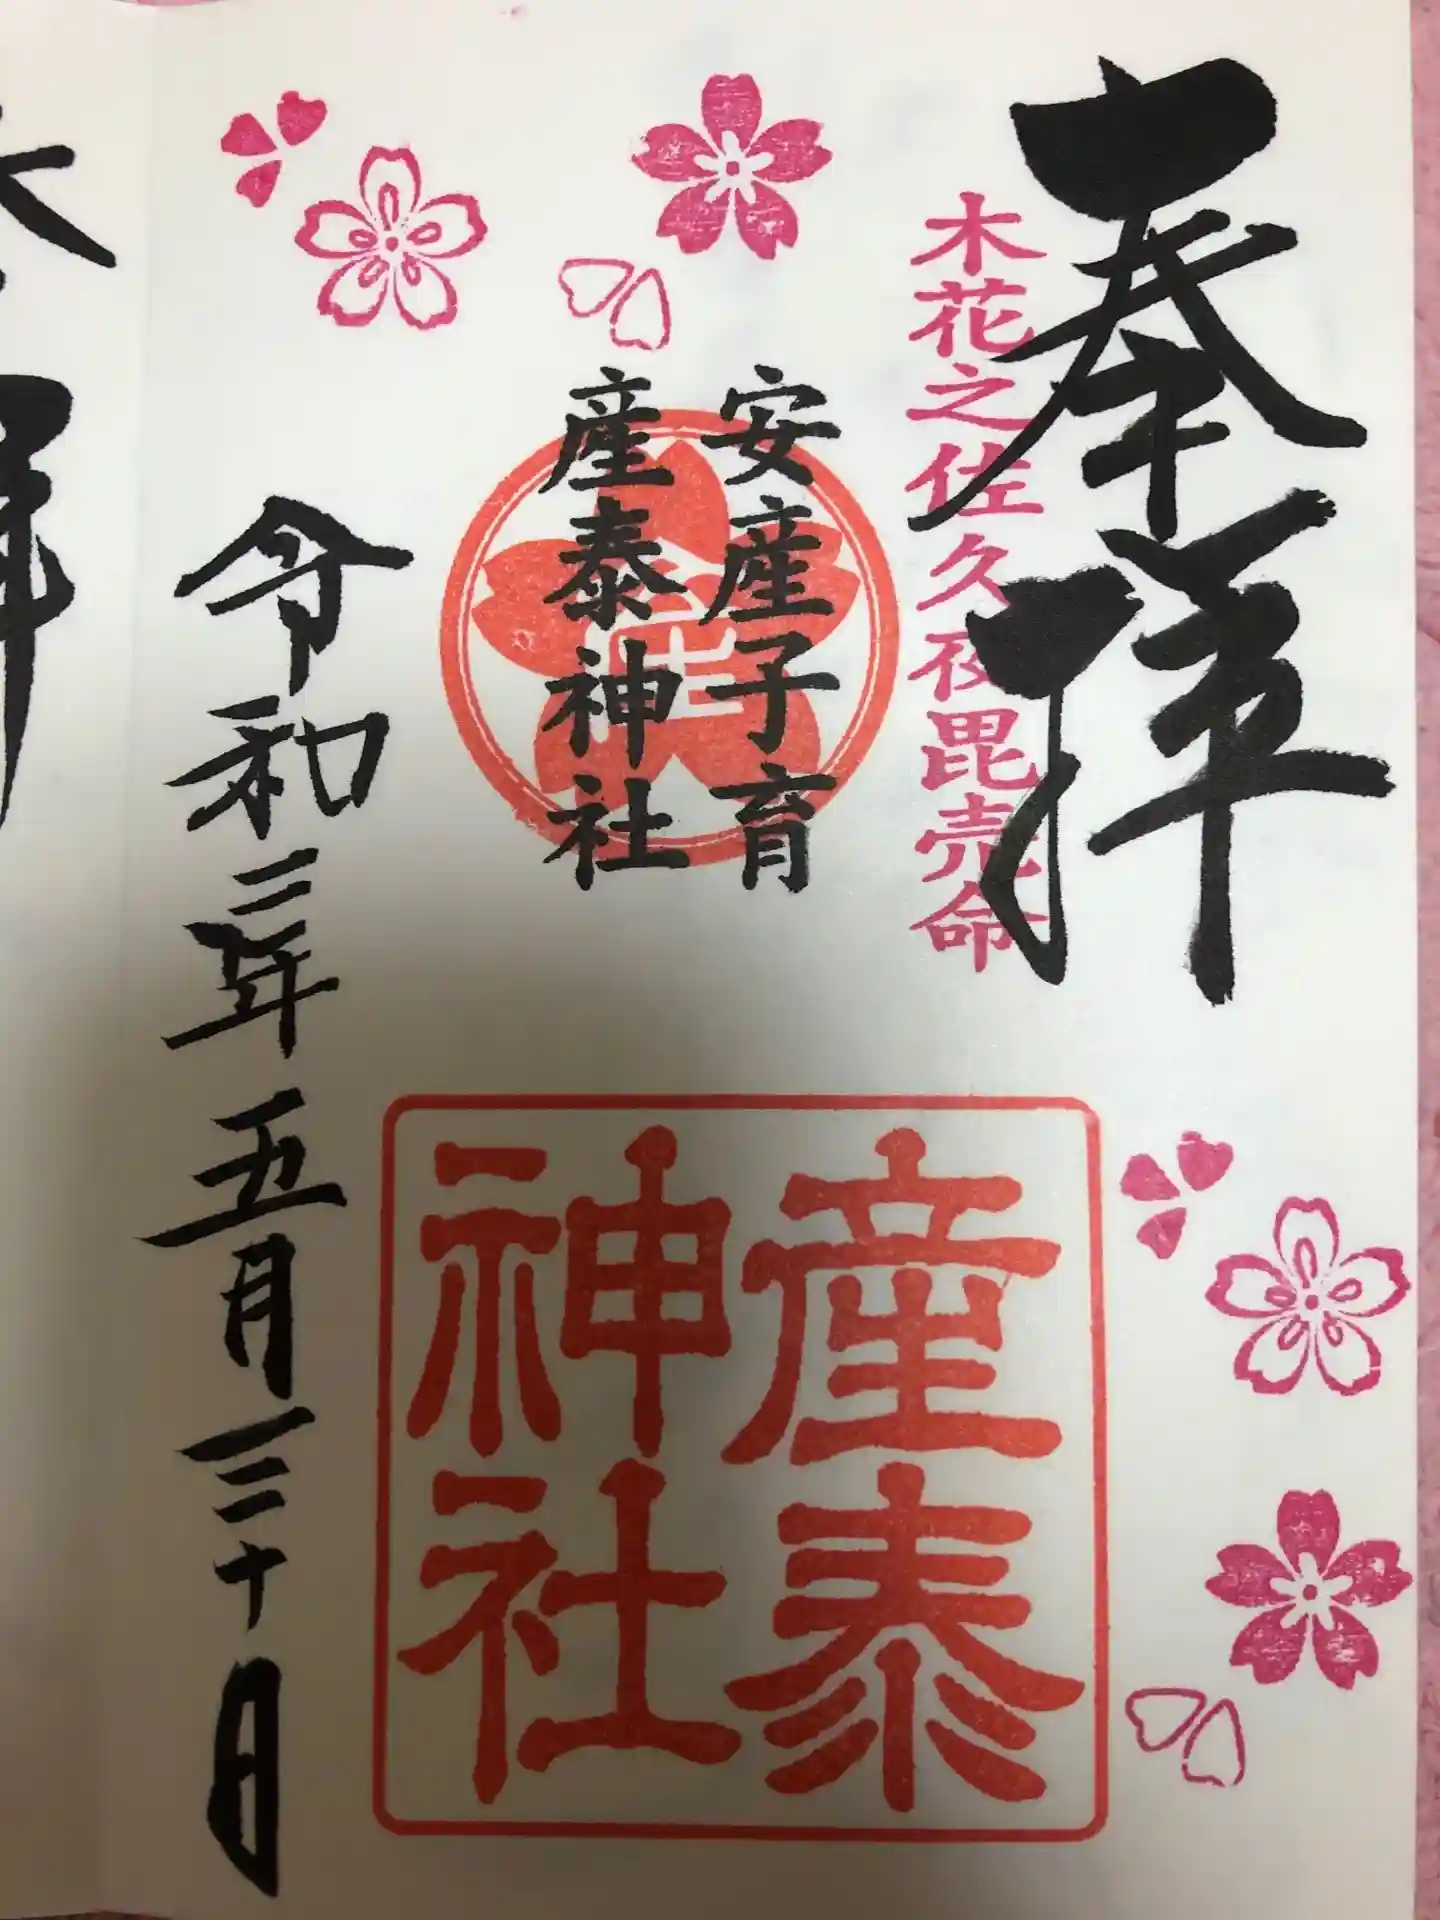 奉拝
木花之佐久夜毘売命
安産子育
産泰神社
産泰
神社
令和三年五月三十日
拝